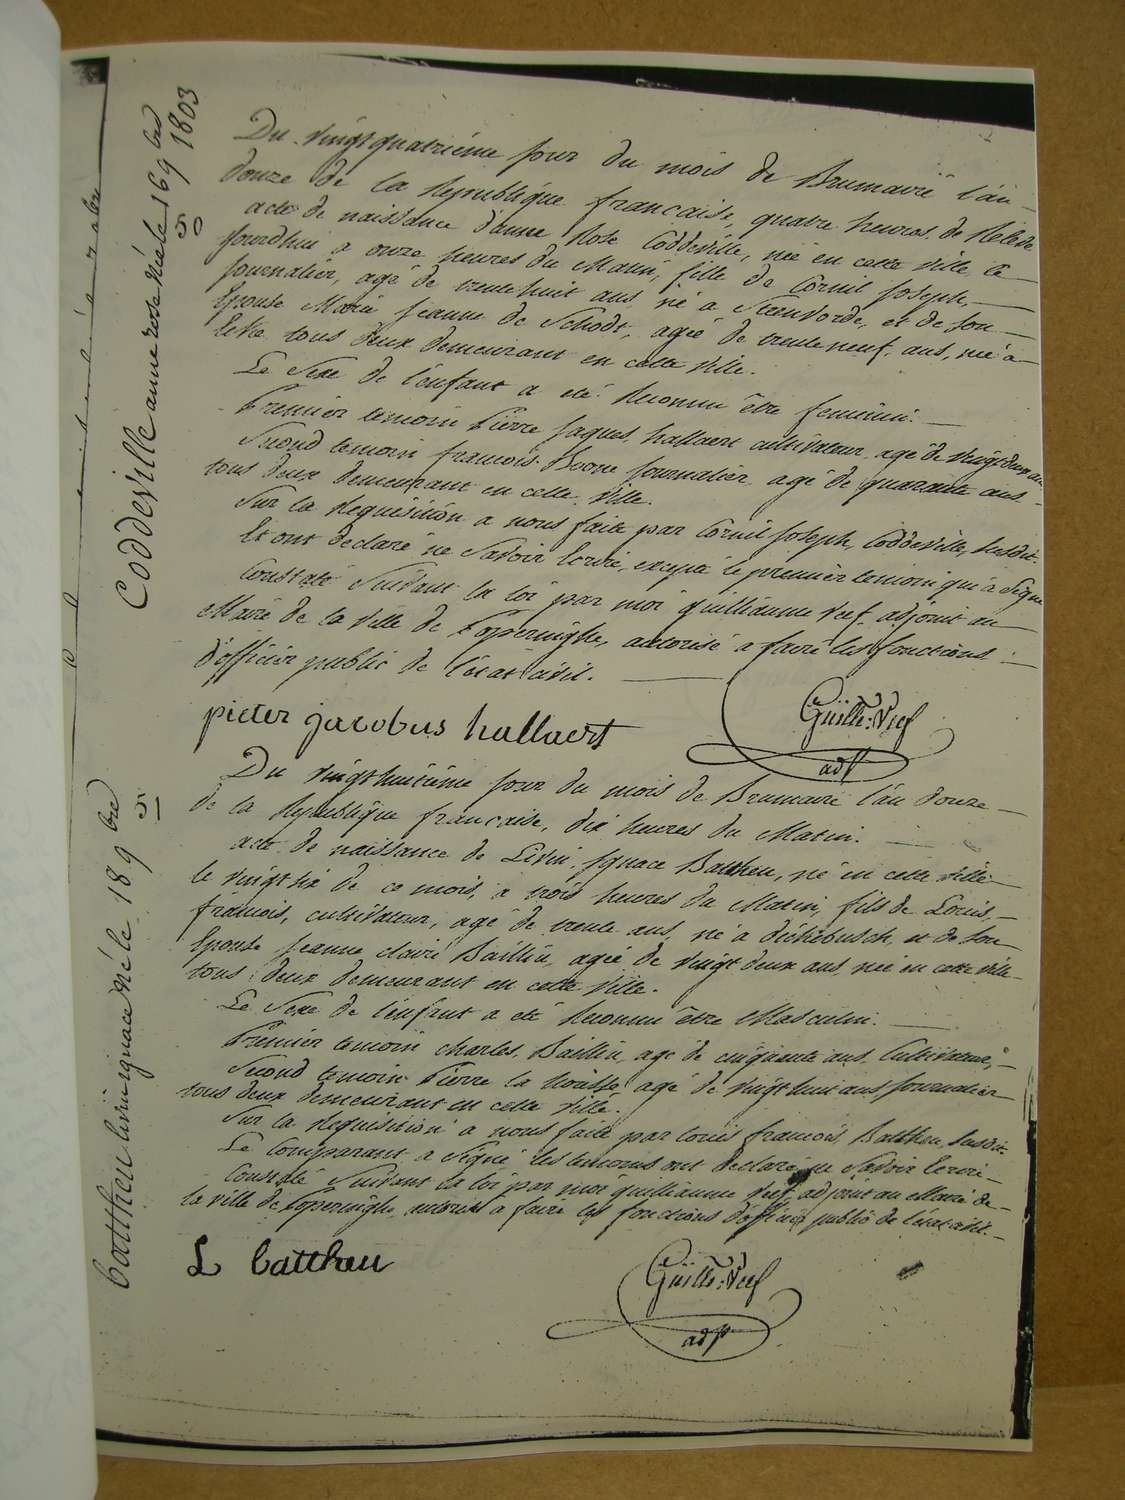 Coddeville anne rose née le 16 9bre 1803
50
Du vingtquatriéme jour du mois de Brumaire l'an
douze de la Republique française, quatre heures de Relevée
acte de naissance d'anne Rose Coddeville, née en cette ville le
jourdhui a onze heures du Matin, fille de Cornil Joseph
journalier, agé de trentehuit ans né a Steenvorde, et de son
Epouse Marie jeanne de Schodt, agée de trenteneuf ans, née a
tous deux demeurant en cette ville.
Le Sexe de l'enfant a eté Reconnu être feminin.
Premier temoin Pierre Jaques hallaert cultivateur agé de vingtdeux ans
Second temoin francois Boone journalier agé de quarante ans
tous deux demeurant en cette ville.
Sur la Requisition a nous faite par Cornil Joseph Coddeville, susdit.
Et ont declaré ne Savoir Ecrire, excepté le premier temoin qui a Signé
Constaté Suivant la loi par moi guilliaume Veef adjoint au
Maire de la Ville de Poperinghe, autorisé a faire les fonctions
d'officier public de l'état civil.
pieter jacobus hallaert
Guille: Veef
adjt
Battheu livin ignace né le 18 9bre
51
Du vingthuitiéme jour du mois de Brumaire l'an douze
de la Republique française, dix heures du Matin.
acte de naissance de Livin Ignace Battheu, né en cette ville
le vingt six de ce mois, a trois heures du Matin, fils de Louis
francois, cultivateur, agé de trente ans, né a dickebusch, et de son
Epouse jeanne claire Baillieu, agée de vingt deux ans, née en cette ville
tous deux demeurant en cette ville.
Le Sexe de l'enfant a eté Reconnu être Masculin.
Premier temoin charles Baillieu agé de cinquante ans Cultivateur,
Second temoin Pierre la agé de vingthuit ans journalier
tous deux demeurant en cette ville.
Sur la Requisition a nous faite par louis francois Battheu, susdit.
Le Comparant a Signé les temoins ont declaré ne Savoir Ecrire
Constaté Suivant la loi par moi guilliaume Veef adjoint au Maire de
la ville de Poperinghe, autorisé a faire les fonctions d'officier public de l'état civil.
L battheu
Guille: Veef
adjt